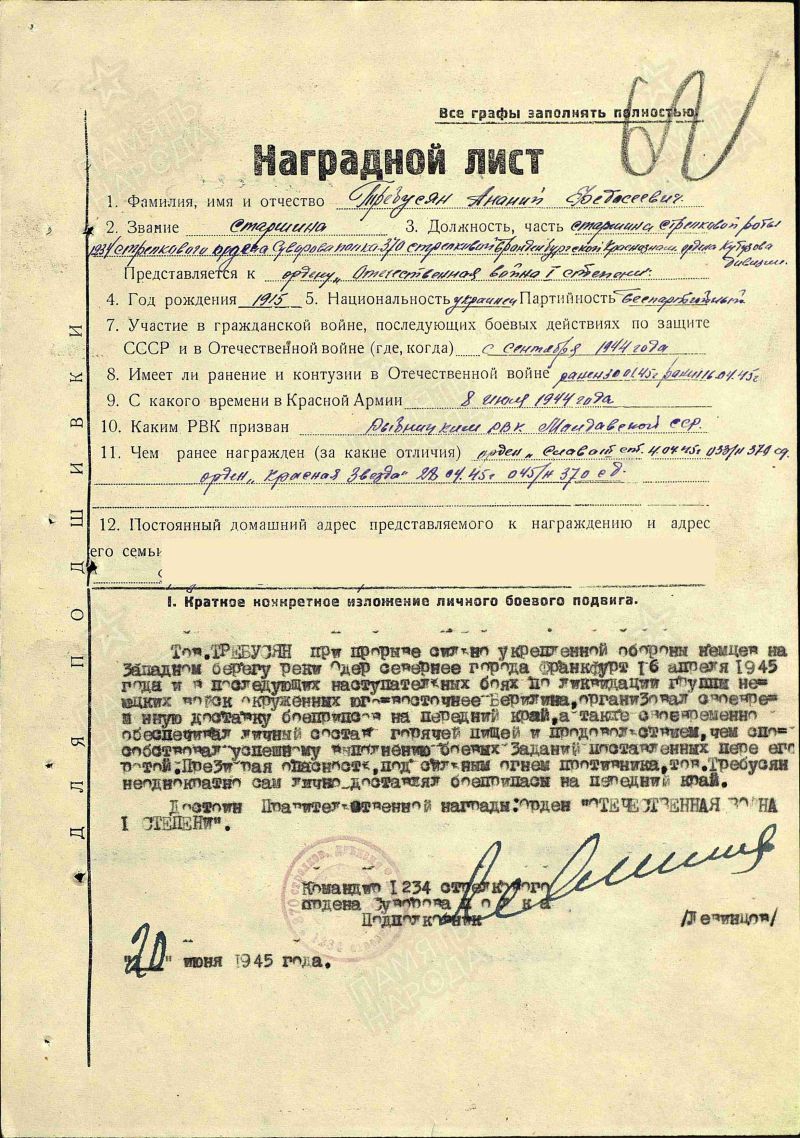 Все графы заполнять полностью.
Наградной лист
1. Фамилия, имя и отчество Требусян Ананий
2. Звание старшина 3. Должность, часть старшина стрелковой роты
1234 стрелкового ордена Суворова полка 370 стрелковой Бранденбургской Краснознам. ордена Кутузова
дивизии.
Представляется к ордену „Отечественная война I степени".
4. Год рождения 1915 5. Национальность украинец Партийность беспартийный
7. Участие в гражданской войне, последующих боевых действиях по защите
СССР и в Отечественной войне (где, когда) с сентября 1944 года
8. Имеет ли ранение и контузии в Отечественной войне ранен 30.01.45г ранен 16.04.45г
9. С какого времени в Красной Армии 8 июля 1944 года
10. Каким РВК призван Рыбницким РВК Молдавской ССР.
11. Чем ранее награжден (за какие отличия) орден „Слава III ст. 4.04.45г 033/н 370 сд.
орден „Красная Звезда" 28.04.45г 045/н 370 сд.
12. Постоянный домашний адрес представляемого к награждению и адрес
его семьи
ДЛЯ ПОДШИВКИ
I. Краткое конкретное изложение личного боевого подвига.
Тов.ТРЕБУСЯН при прорыве сильно укрепленной обороны немцев на
Западном берегу реки Одер севернее города Франкфурт 16 апреля 1945
года и в последующих наступательных боях по ликвидации группы не-
мецких войск окруженных юго-восточнее Берилина,организовал своевре-
м нную доставку боеприпсов на передний край,а также своевременно
обеспечивал личный состав горячей пищей и продовольствием,чем спо-
собствовал успешному выполнению боевых Заданий поставленных пере его
ротой.Презирая опасность,под сильным огнем противника,тов.Требусян
неоднократно сам лично доставлял боеприпасы на передний край.
Достоин Правительственной награды:орден "ОТЕЧЕСТВЕННАЯ ВОЙНА
I СТЕПЕНИ".
Командир 1234 стрелкового
ордена Суворова полка
Подполковник /Левинцов/
"20" июня 1945 года.
ПАМЯТЬ НАРОДА